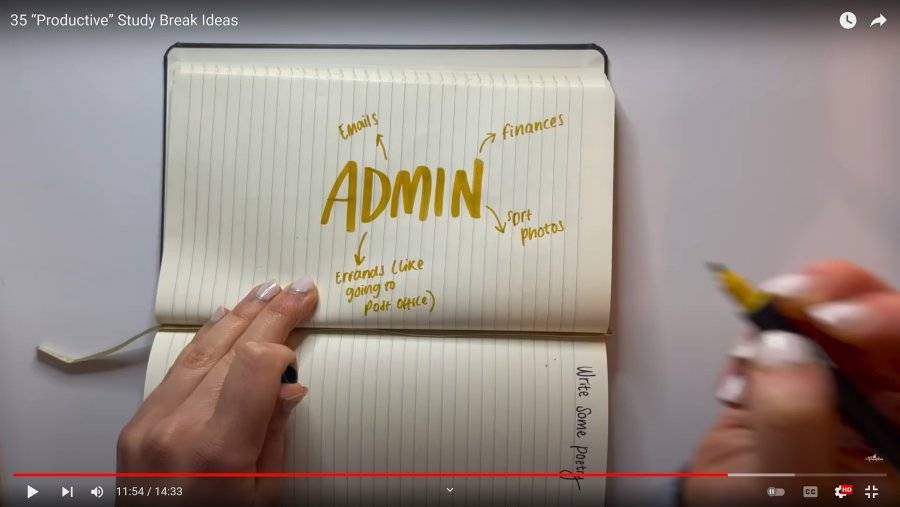 35 “Productive” Study Break Ideas
Emails
finances
ADMIN
sort
photos
Errands (like
going to
Post Office)
Write some poetry
11:54 / 14:33
CC
HD